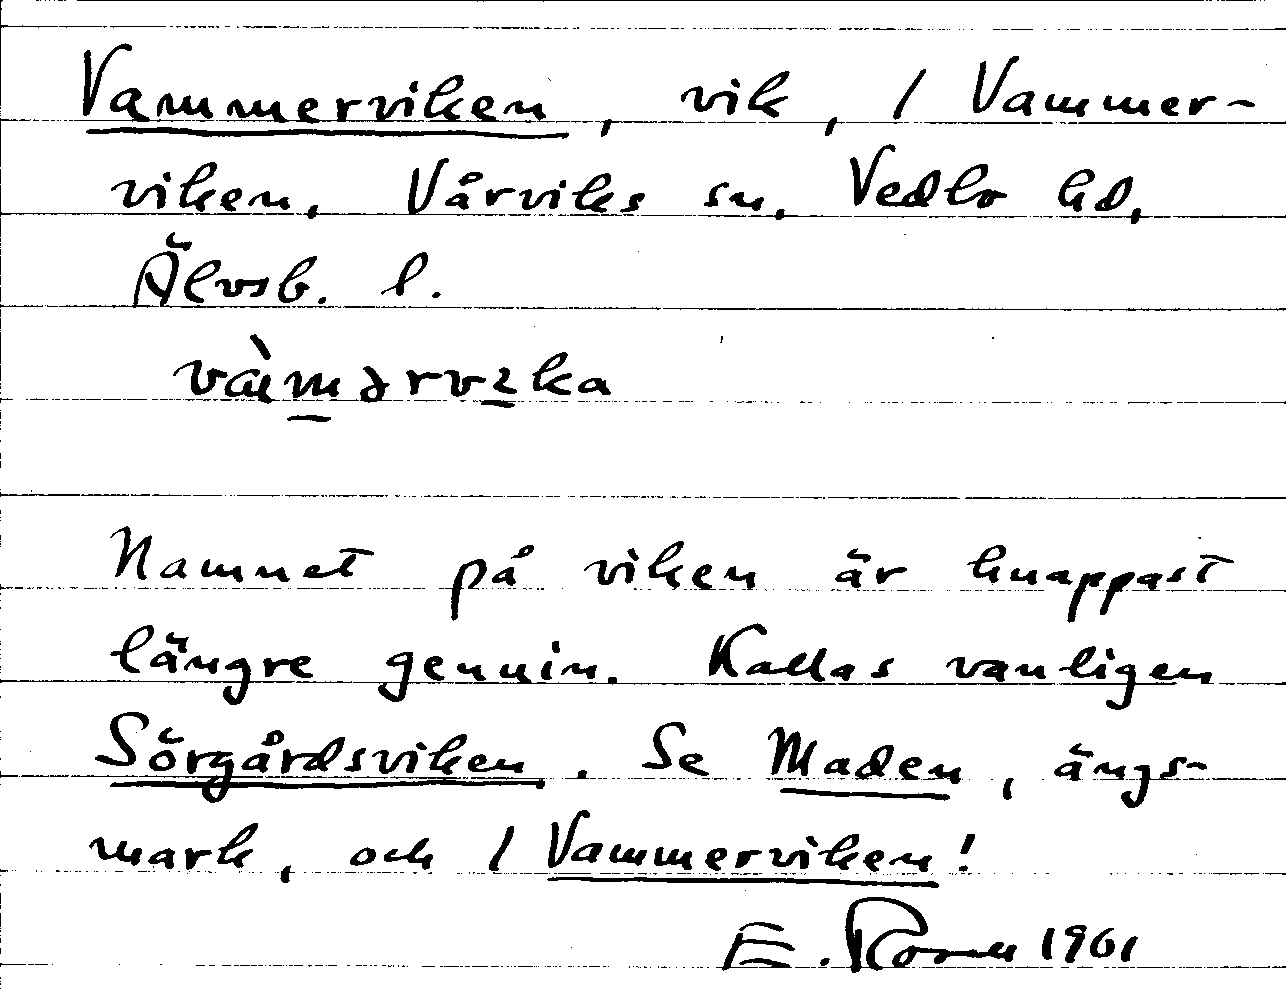 Vammerviken, vik, / Vammer-
viken. Vårviks sn. Vedbo hd,
Älvsb. l.
Namnet på viken är knappast
längre genuin. Kallas vanligen
Sörgårdsviken. Se Maden, ängs-
mark, och / Vammerviken!
E. 1961